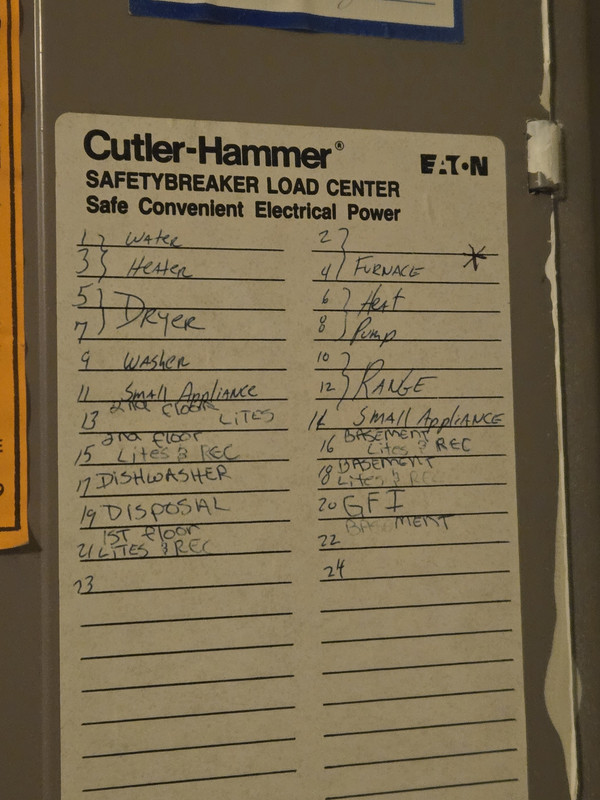 Cutler-Hammer®
EATON
SAFETYBREAKER LOAD CENTER
Safe Convenient Electrical Power
1 } Water
3 } Heater
5 }
7 } Dryer
9 Washer
11 Small Appliance
13 2nd floor LITES
2nd floor
15 Lites & REC
17 DISHWASHER
19 DISPOSAL
1ST floor
21 LITES & REC
23
2 }
4 } FURNACE *
6 } Heat
8 } Pump
10 }
12 } RANGE
14 SMALL APPLIANCE
16 BASEMENT
Lites & REC
18 BASEMENT
Lites & REC
20 GFI
BASEMENT
22
24